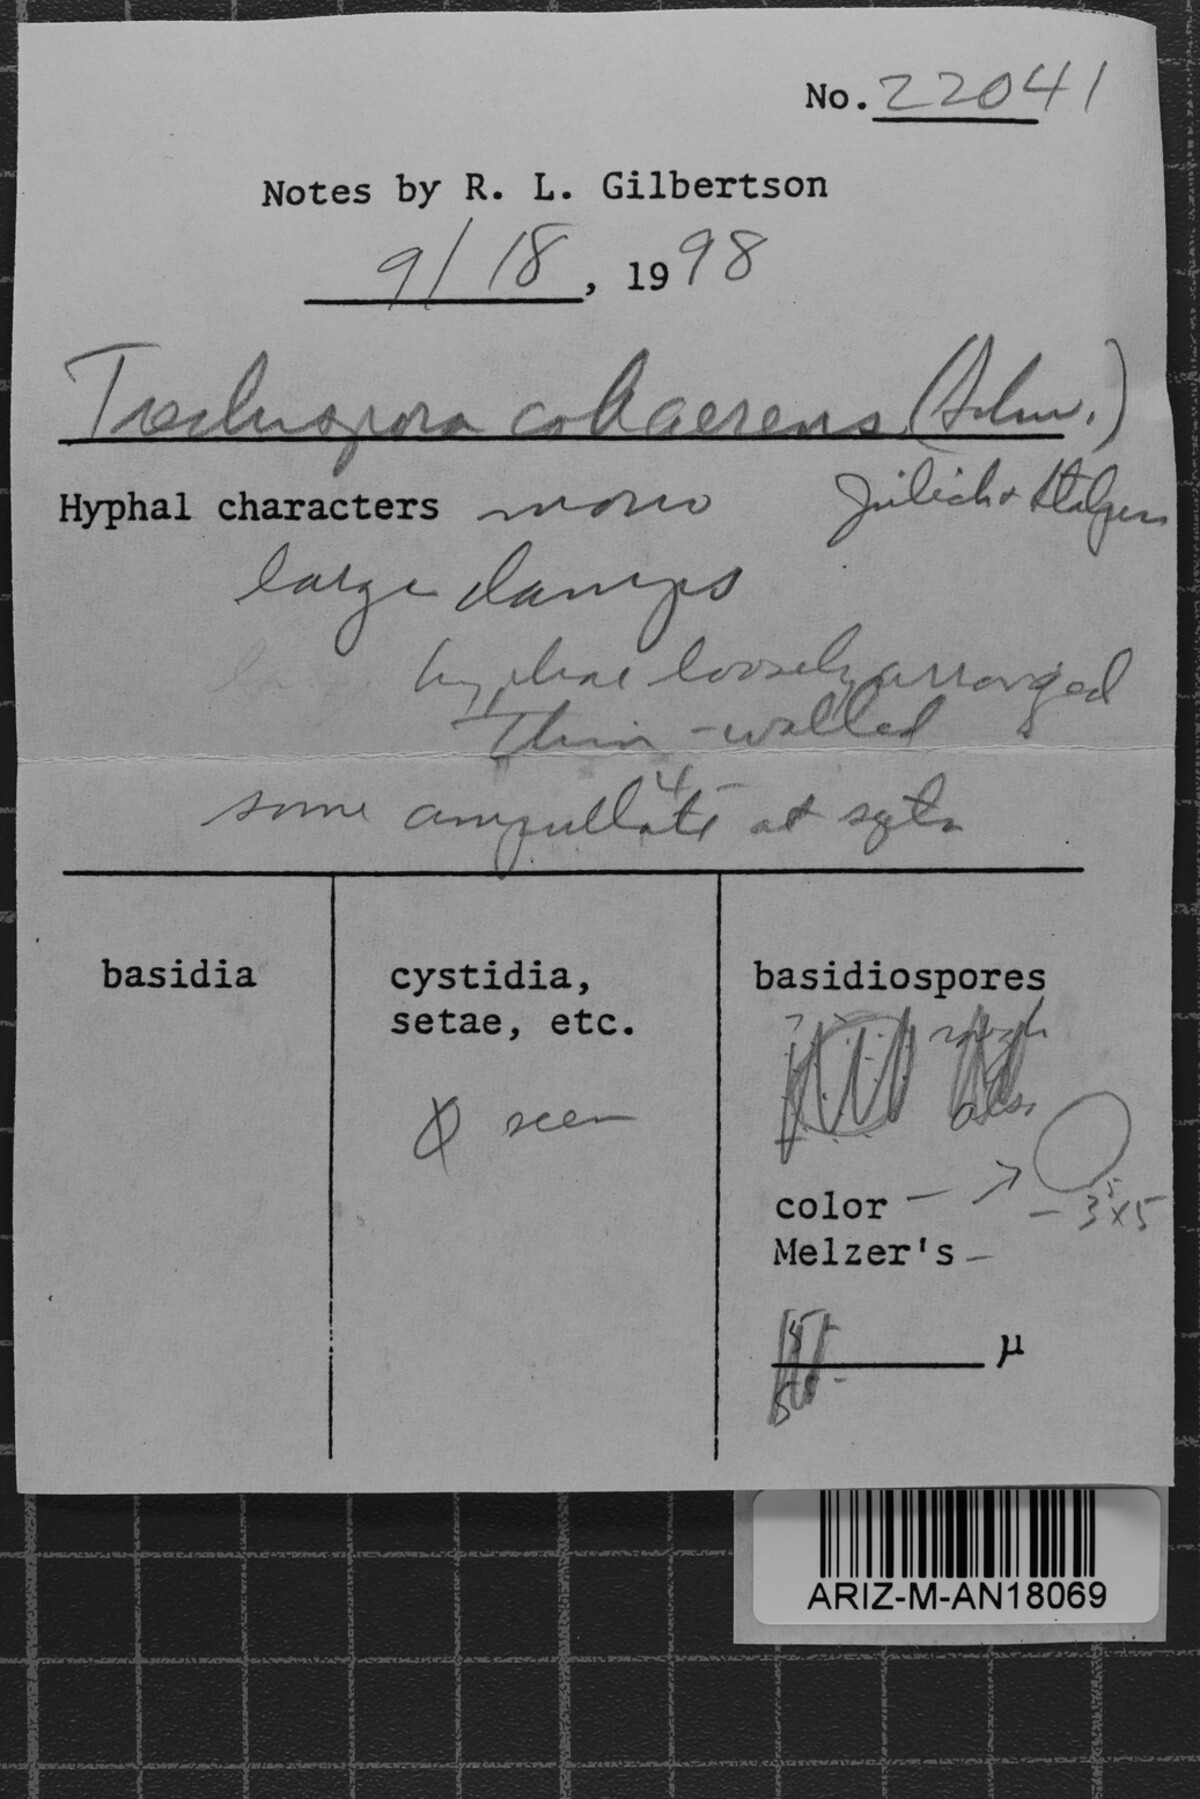 No. 22041
Notes by R. L. Gilbertson
9/18, 1998
Trechispora cohaerens (Schw.)
Jülich & Stalpers
Hyphal characters mono
large clamps
hyphae loosely arranged
thin-walled
4-
some ampullate at septa
basidia
cystidia,
setae, etc.
Ø seen
basidiospores
rough
also
color – →
– 3.5x5
Melzer's –
μ
ARIZ-M-AN18069